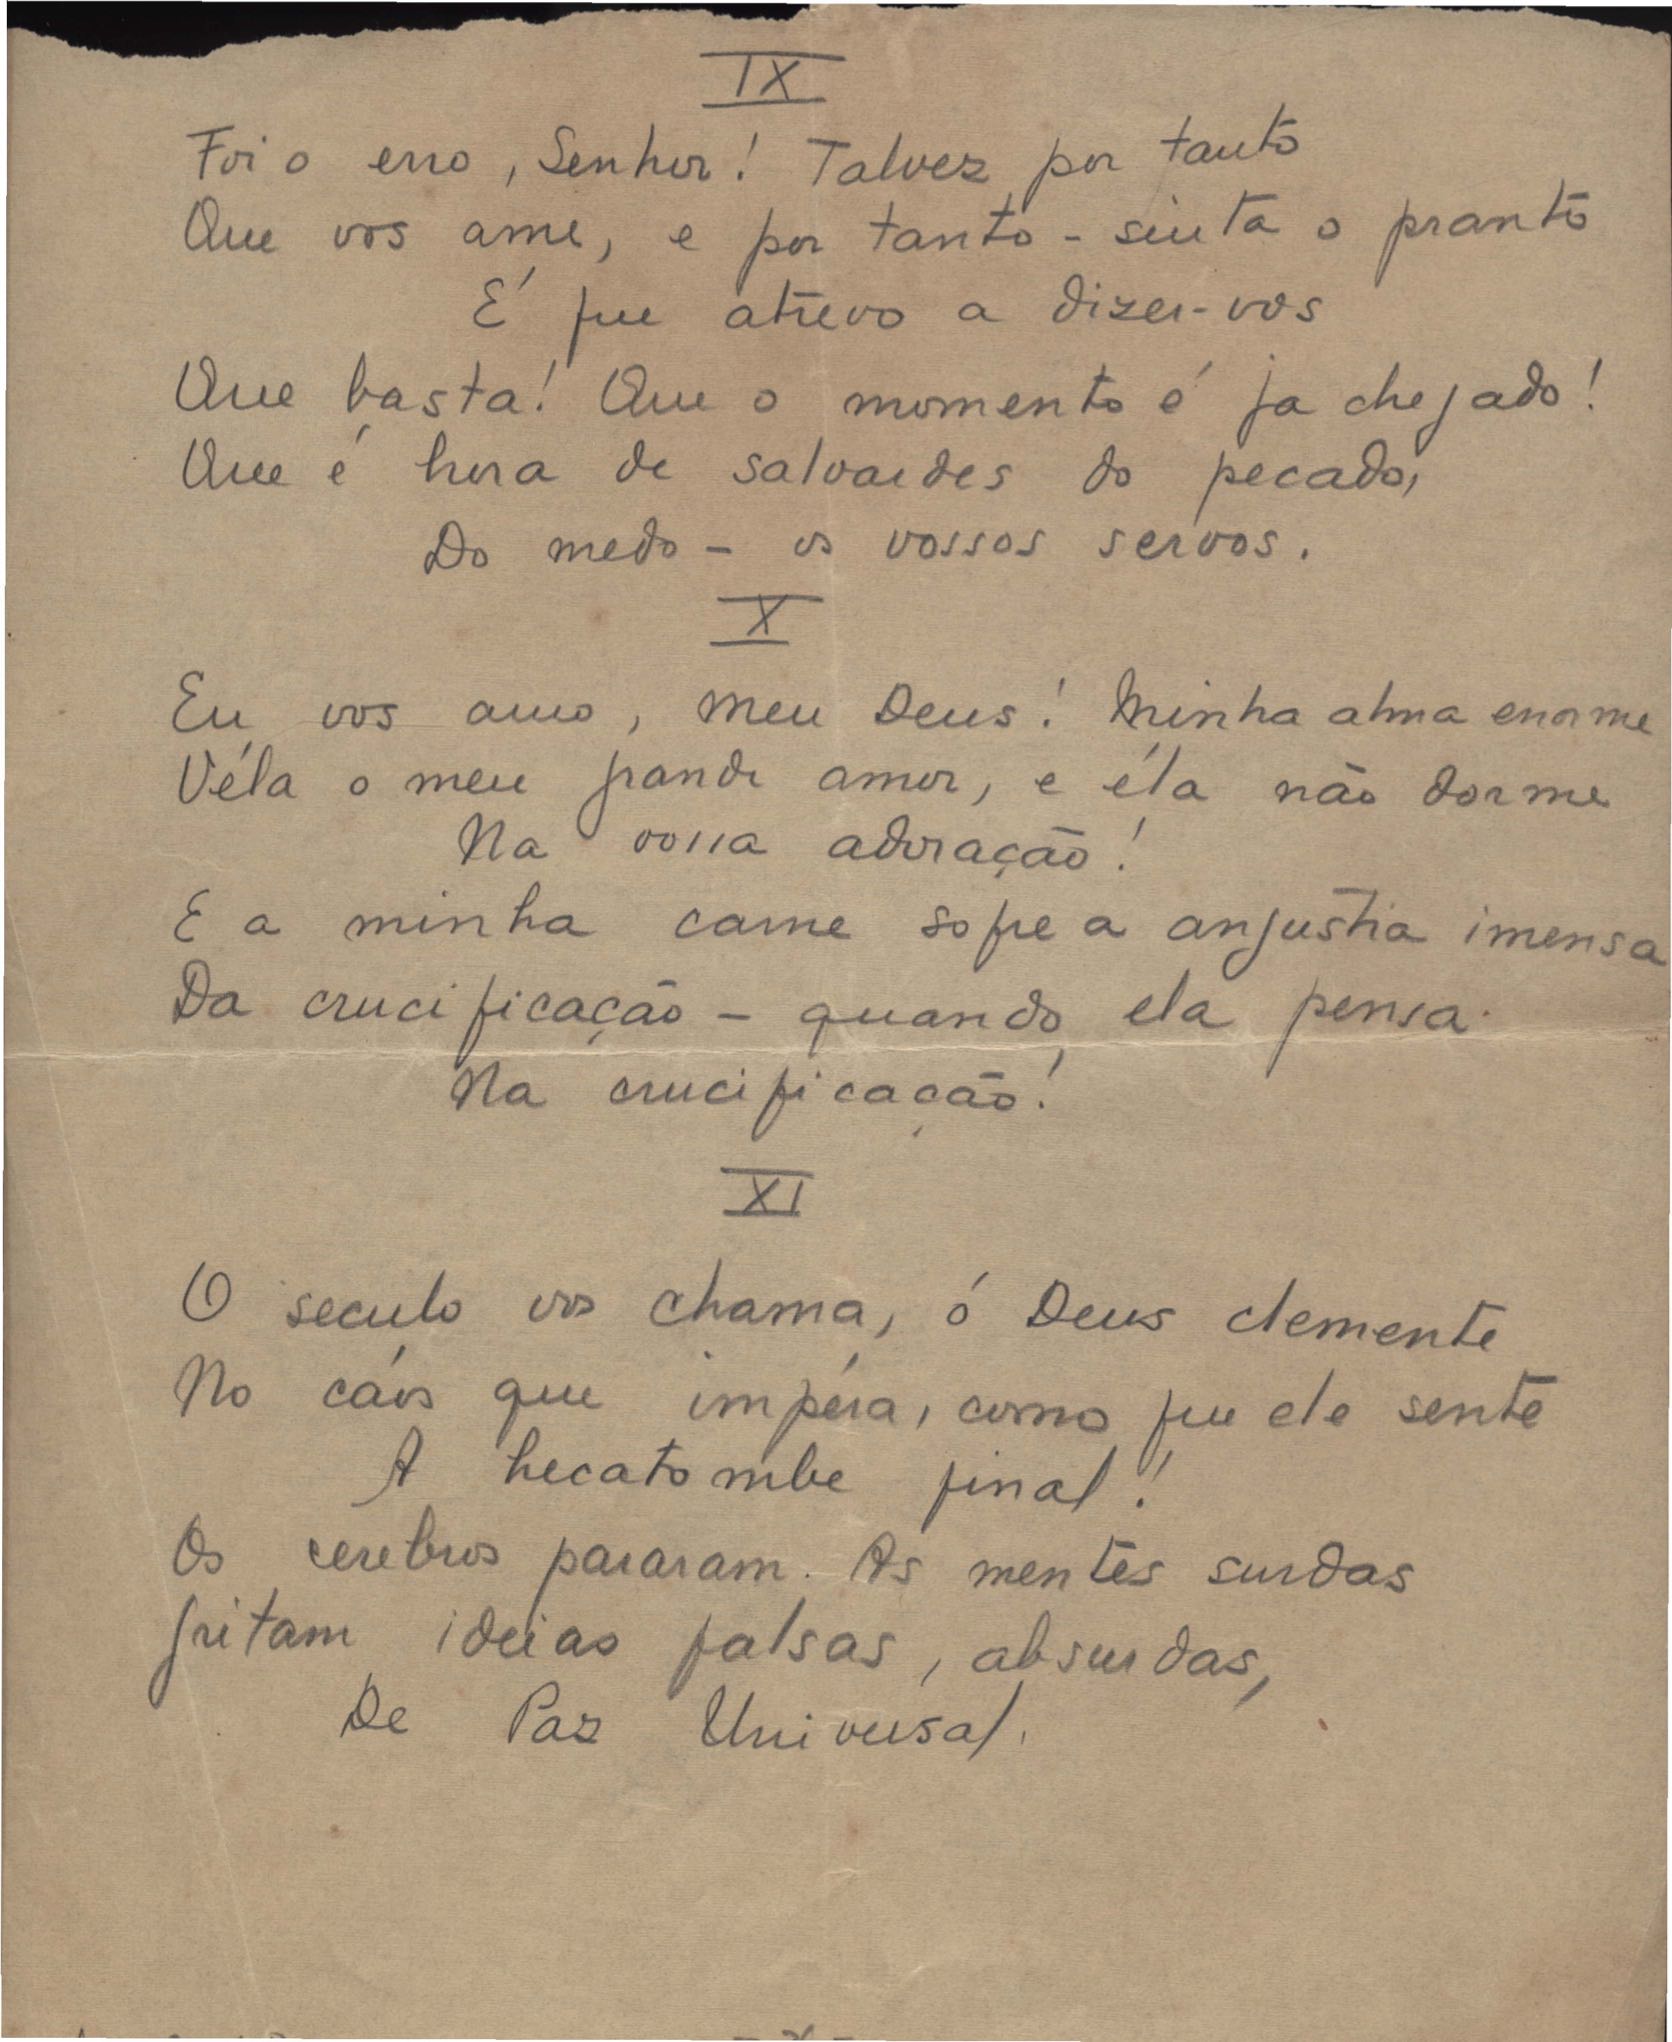 IX
Foi o erro, Senhor! Talvez por tanto
Que vos ame, e por tanto - sinta o pranto
É que atrevo a dizer-vos
Que basta! Que o momento é ja chegado!
Que é hora de salvardes do pecado,
Do medo - os vossos servos.
X
Eu vos amo, meu Deus! Minha alma enorme
Véla o meu grande amor, e éla não dorme
Na vossa adoração!
E a minha carne sofre a angustia imensa
Da crucificação - quando ela pensa
Na crucificação!
XI
O seculo vos chama, ó Deus clemente
No cáos que impéra, como que ele sente
A hecatombe final!
Os cerebros pararam. As mentes surdas
gritam ideias falsas, absurdas,
De Paz Universal.